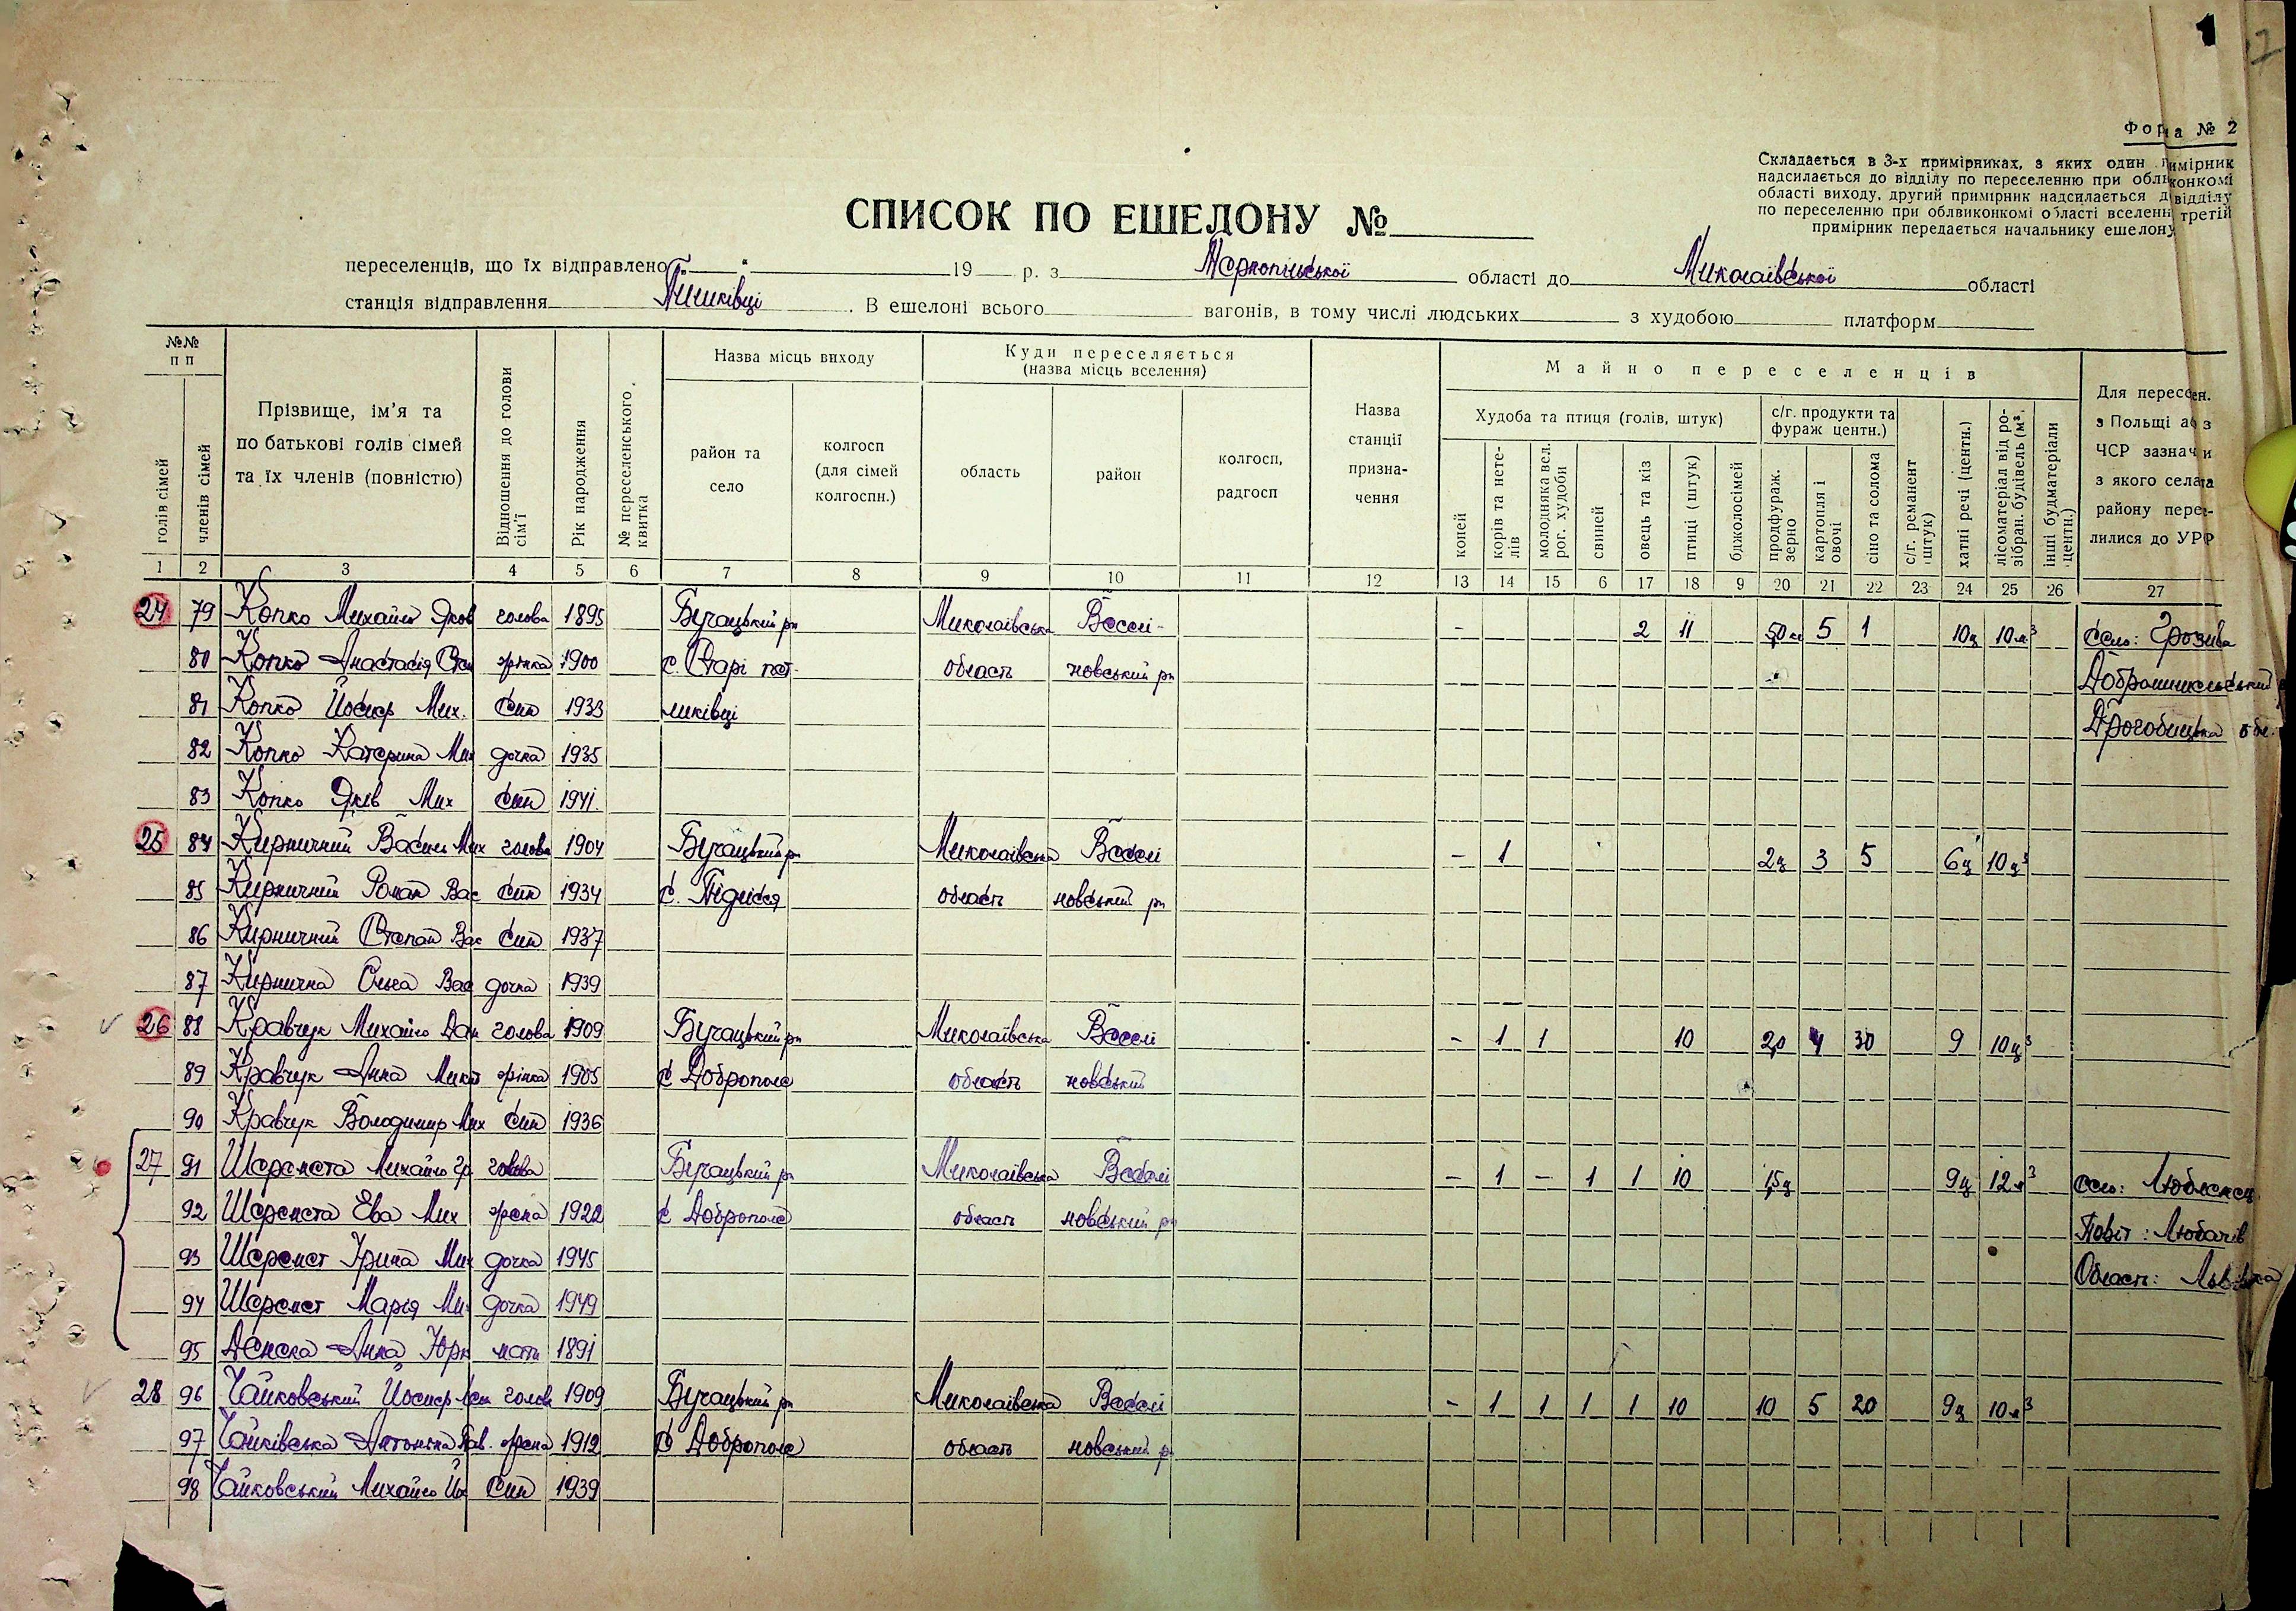 Форма № 2
Складається в 3-х примірниках, з яких один примірник
надсилається до відділу по переселенню при облвиконкомі
області виходу, другий примірник надсилається до відділу
по переселенню при облвиконкомі області вселення третій
примірник передається начальнику ешелону
СПИСОК ПО ЕШЕЛОНУ №
переселенців, що їх відправлено 19 р. з Тернопільської області до Миколаївської області
станція відправлення Пишківці. В ешелоні всього вагонів, в тому числі людських з худобою платформ
№№ п п
голів сімей
членів сімей
Прізвище, ім'я та
по батькові голів сімей
та їх членів (повністю)
Відношення до голови сім'ї
Рік народження
№ переселенського квитка
Назва місць виходу
район та село
колгосп (для сімей колгоспн.)
Куди переселяється
(назва місць вселення)
область
район
колгосп, радгосп
Назва станції призна-чення
Майно переселенців
Худоба та птиця (голів, штук)
коней
корів та нете-лів
молодняка вел. рог. худоби
свиней
овець та кіз
птиці (штук)
бджолосімей
с/г. продукти та фураж центн.)
продфураж. зерно
картопля і овочі
сіно та солома
с/г. реманент (штук)
хатні речі (центн.)
лісоматеріал від ро-зібран. будівель (м³.
інші будматеріали (центн.)
Для пересен.
з Польщі або з
ЧСР зазначи
з якого села та
району пере-
лилися до УРР
1 2 3 4 5 6 7 8 9 10 11 12 13 14 15 6 17 18 9 20 21 22 23 24 25 26 27
24 79 Копко Михайло Яков голова 1895 Бучацький рн Миколаївська Веселі- - 2 11 50 5 1 10ц 10м³ село: Грозива
80 Копко Анастасія Сте жінка 1900 с. Старі пет- область новський рн Добромильський
81 Копко Йосиф Мих. син 1933 ликівці Дрогобицька обл.
82 Копко Катерина Мих дочка 1935
83 Копко Яків Мих син 1941
25 84 Кирничний Василь Мих голова 1904 Бучацький рн Миколаївська Веселі - 1 2ц 3 5 6ц 10ц³
85 Кирничний Роман Вас син 1934 с. Підлісся область новський рн
86 Кирничний Степан Вас син 1937
87 Кирнична Ольга Вас дочка 1939
26 88 Кравчук Михайло Дан голова 1909 Бучацький рн Миколаївська Веселі - 1 1 10 20 4 30 9 10ц³
89 Кравчук Анна Мики жінка 1905 с Доброполе область новський
90 Кравчук Володимир Мих син 1936
27 91 Шеремета Михайло Гр голова Бучацький рн Миколаївська Веселі - 1 - 1 1 10 15ц 9ц 12м³ село: Люблєнец
92 Шеремета Ева Мих жена 1922 с Доброполе область новський рн Повіт: Любачів
93 Шеремет Ірина Мих дочка 1945 Область: Львівська
94 Шеремет Марія Ми дочка 1949
95 Анна Юрк мати 1891
28 96 Чайковський Йосиф голов 1909 Бучацький рн Миколаївська Веселі - 1 1 1 1 10 10 5 20 9ц 10м³
97 Чайківська Антоніна Пав. жена 1912 с Доброполе область новський р
98 Чайковський Михайло Йо син 1939